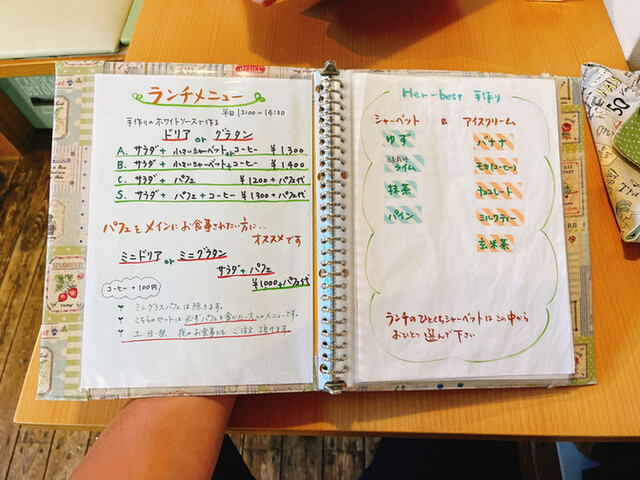 ランチメニュー
平日 12:00〜14:30
手作りのホワイトソースで作る
ドリア or グラタン
A. サラダ + 小さいシャーベット + コーヒー ¥1300
B. サラダ + 小さいシャーベット + コーヒー ¥1400
C. サラダ + パフェ ¥1200+パフェ代
S. サラダ + パフェ + コーヒー ¥1300+パフェ代
パフェをメインにお食事されたい方に…
オススメです
ミニドリア or ミニグラタン
サラダ + パフェ
¥1000+パフェ代
コーヒー + 100円
ミニグラスパフェは除きます。
こちらのセットは必ずパフェを食べたい方へのメニューです。
土・日・祭 夜のお食事にも ご注文頂けます。
Her-best 手作り
シャーベット & アイスクリーム
ゆず
ライム
抹茶
パイン
バナナ
モカ(コーヒー)
チョコレート
ミルクティー
玄米茶
ランチのひとくちシャーベットは この中から
おひとつ 選んで下さい